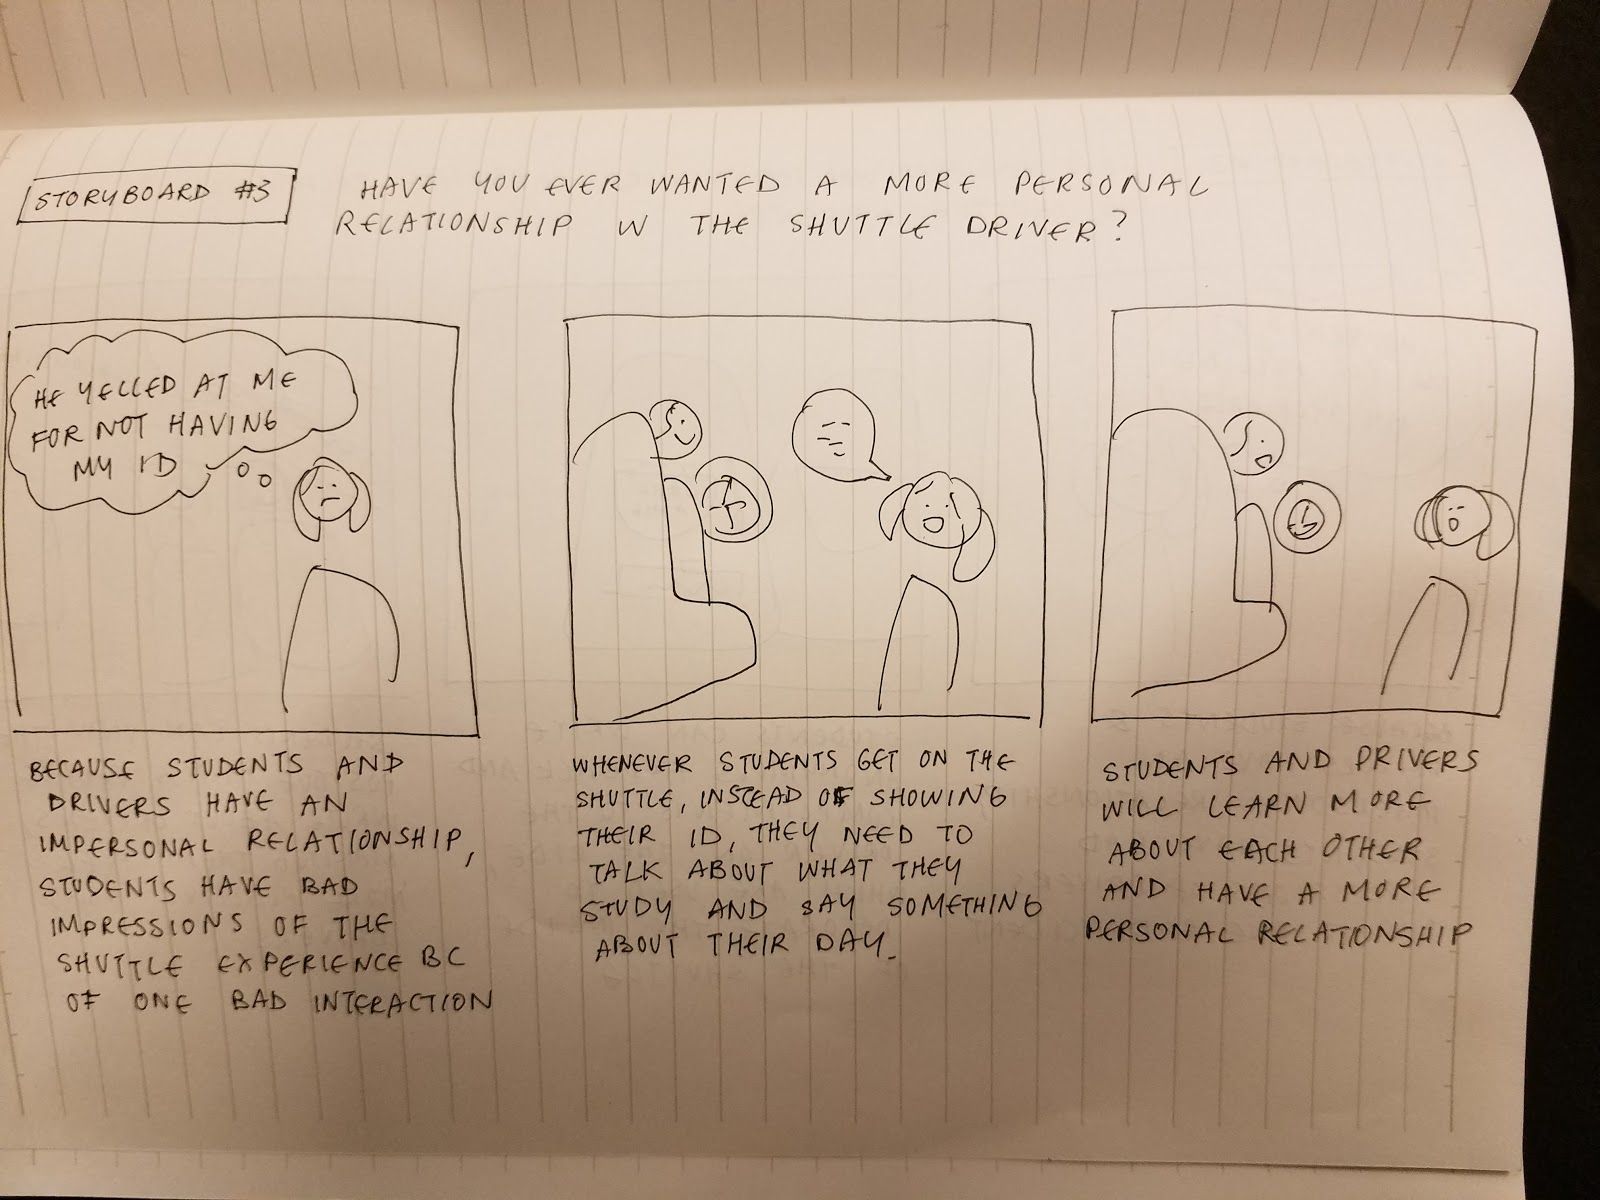 STORYBOARD #3
HAVE YOU EVER WANTED A MORE PERSONAL
RELATIONSHIP W THE SHUTTLE DRIVER?
HE YELLED AT ME
FOR NOT HAVING
MY ID
BECAUSE STUDENTS AND
DRIVERS HAVE AN
IMPERSONAL RELATIONSHIP,
STUDENTS HAVE BAD
IMPRESSIONS OF THE
SHUTTLE EXPERIENCE BC
OF ONE BAD INTERACTION
WHENEVER STUDENTS GET ON THE
SHUTTLE, INSTEAD OF SHOWING
THEIR ID, THEY NEED TO
TALK ABOUT WHAT THEY
STUDY AND SAY SOMETHING
ABOUT THEIR DAY.
STUDENTS AND DRIVERS
WILL LEARN MORE
ABOUT EACH OTHER
AND HAVE A MORE
PERSONAL RELATIONSHIP